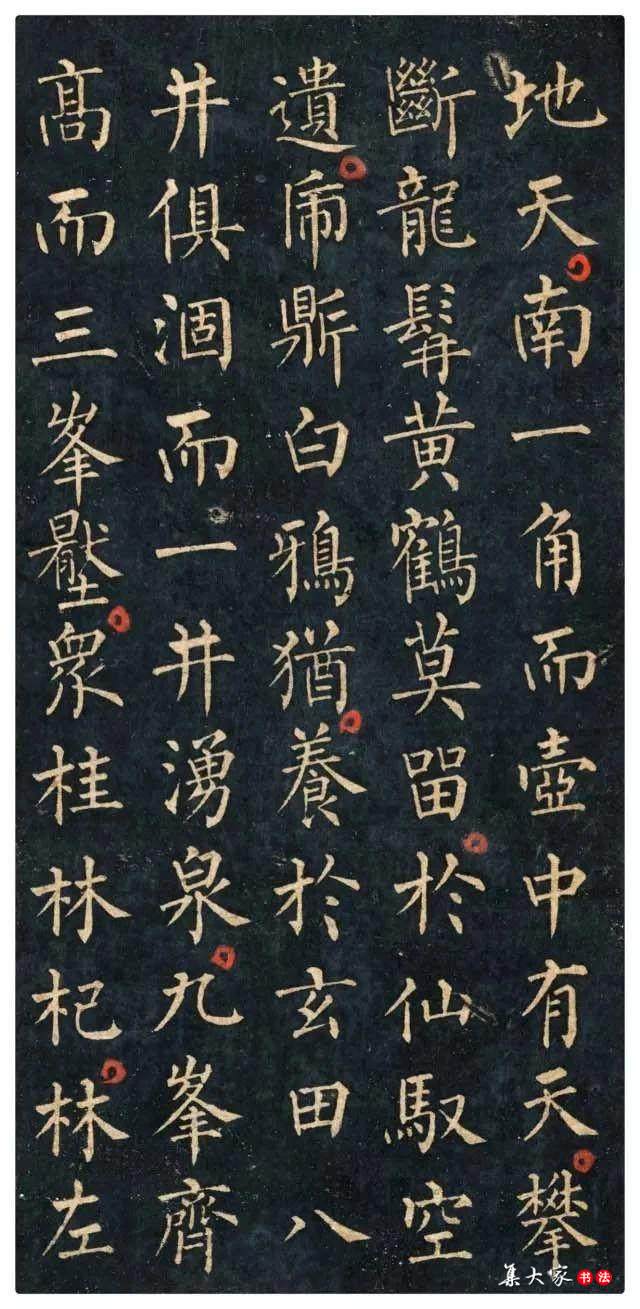 地天南一角而壺中有天攀
斷龍髯黄鶴莫留於仙馭空
遺帝鼎白鴉猶養於玄田八
井俱涸而一井湧泉九峯齊
髙而三峯壓衆桂林杞林左
集大家 书法